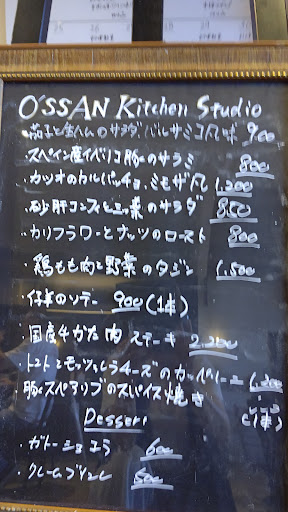 O'SSAN Kitchen Studio
・茄子と生ハムのサラダ バルサミコ風味 900
スペイン産イベリコ豚のサラミ 800
・カツオのカルパッチョ、ミモザ風 1,200
・砂肝コンフィと葉のサラダ 850
・カリフラワーとナッツのロースト 800
・鶏もも肉と野菜のタジン 1,500
・仔羊のソテー 900(1本)
・国産牛かた肉 ステーキ 2,200
・トマトとモッツァレラチーズのカッペリーニ 1,200
豚スペアリブのスパイス焼き (1本)
Dessert
・ガトーショコラ 600
・クレームブリュレ 500